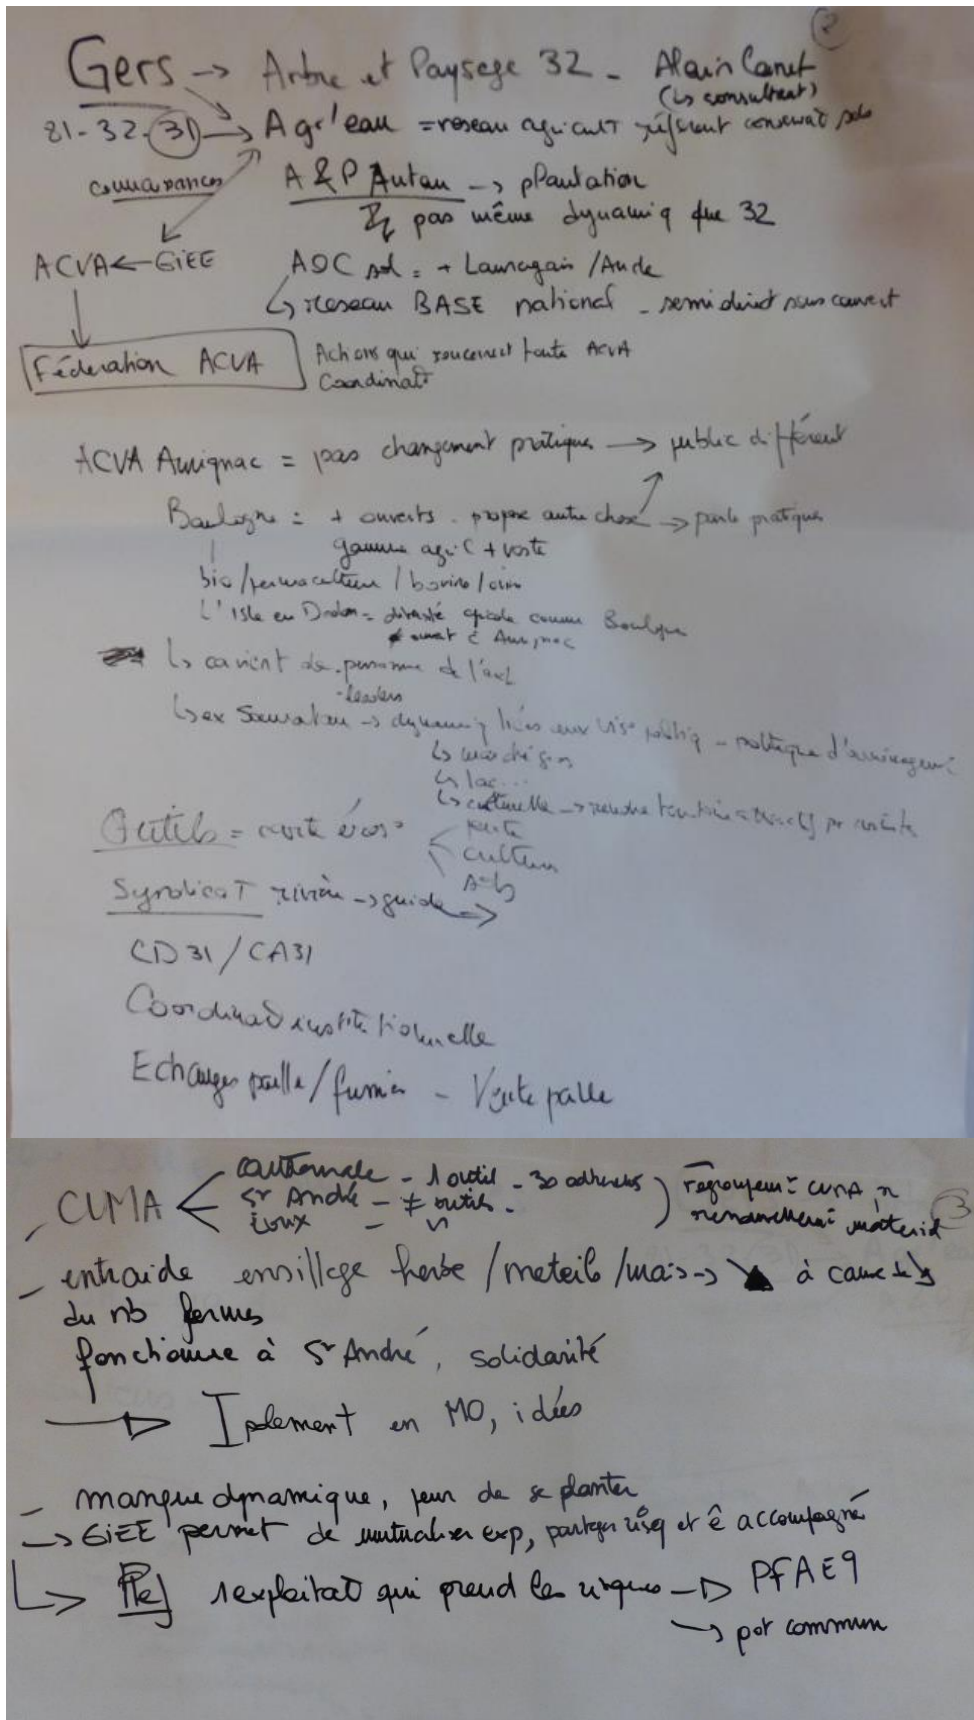 2
Gers → Arbre et Paysage 32 - Alain Canet
(↳ consultant)
81-32-31 → Agr'eau = reseau agricult référent conservat sols
connaissances A&P Autan → plantation
pas même dynamiq que 32
ACVA ← GIEE AOC sol = + Lauragais / Aude
↳ reseau BASE national - semi direct sous couvert
Féderation ACVA Actions qui concernent toute ACVA
Coordinat°
ACVA Aurignac = pas changement pratiques → public différent
Boulogne = + ouverts - propose autre chose → parle pratiques
gamme agric + vaste
bio/permaculteur / bovins / ovins
L'Isle en Dodon = diversité agricole comme Boulogne
ouvert Aurignac
↳ ca vient de personne de l'ext
- leaders
↳ ex → dynamiq liées aux vis° politiq - politique d'aménagemt
↳
↳ lac...
↳ culturelle → rendre territoire attractif pr
Outils = carte
culture
Syndicat rivière → guide →
CD31/CA31
Coordinat° institutionnelle
Echanges paille/fumier - Vente paille
3
- CUMA < cantonale - 1 outil - 30 adhérents
St André - ≠ outils -
- regroupemt CUMA
renouvellemt matériel
- entraide ensillage herbe / meteils / mais → ↘ à cause ↘
du nb fermes
fonctionne à St André, solidarité
→ Isolement en MO, idées
- manque dynamique, peur de se planter
→ GIEE permet de mutualiser exp, partager risq et ê accompagné
↳ 1 exploitat° qui prend les risques → PFAE9
→ pot commun